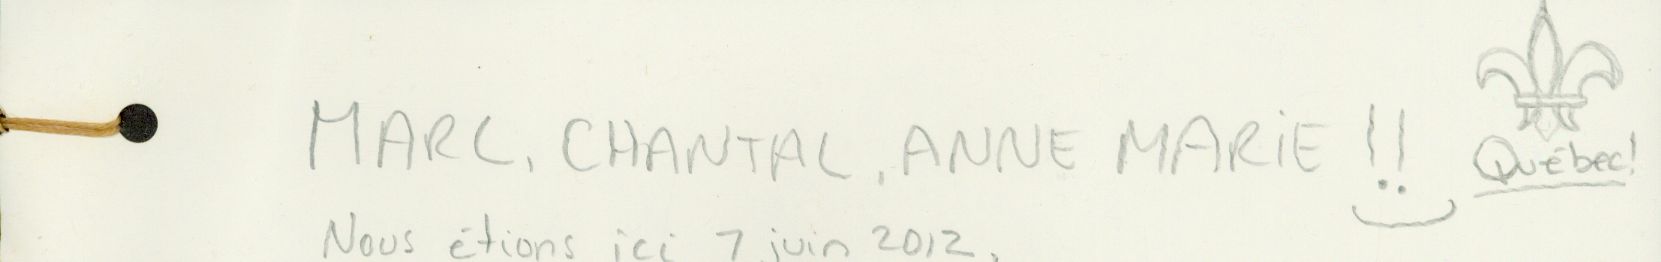 MARC, CHANTAL, ANNE MARIE !!
Québec!
Nous étions ici 7 juin 2012,